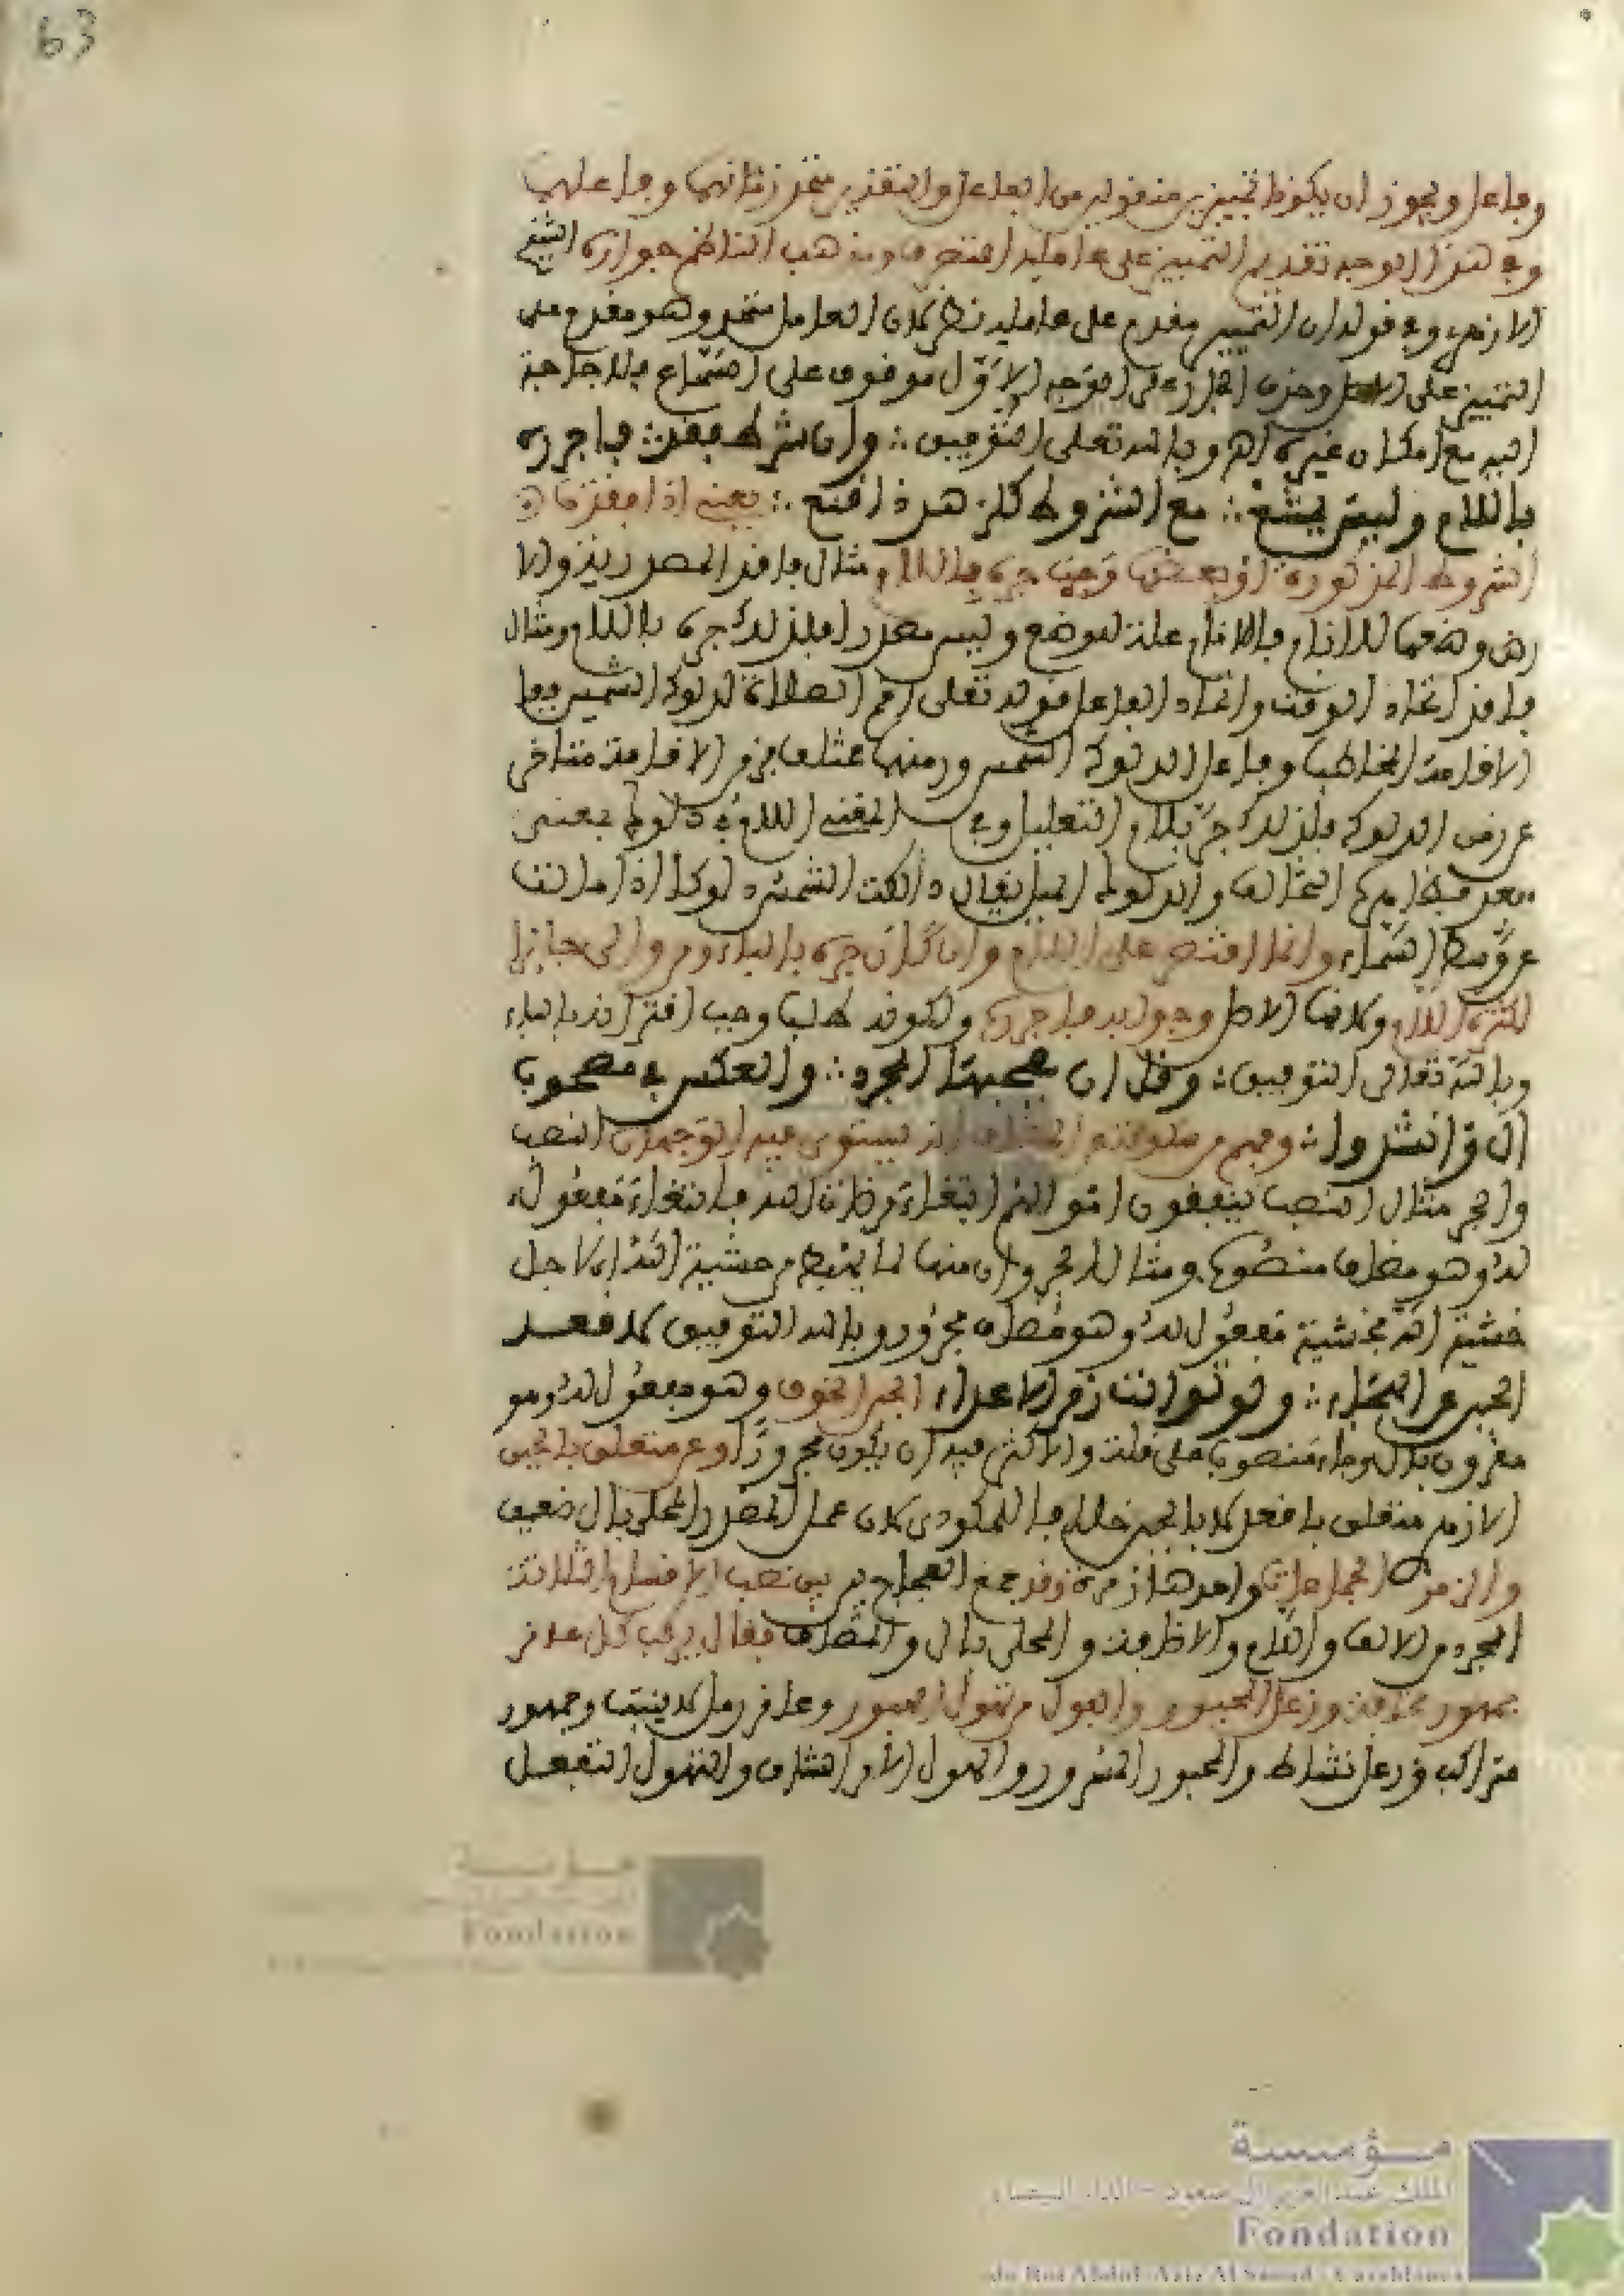 63
وفاعل ويجوز ان يكونا تمييزين منقولين من الفاعل والتقدير متحد زمانهما وفاعلهما
وفي هذا الوجه تقديم التمييز على عامله المتصرف ومذهب الناظم جوازه الشيخ
الازهري وفي قوله ان التمييز مقدم على عامله نظر لان العامل متحد وهو مقدم على
التمييز على الاصل وحذف الجار على الوجه الاول موقوف على السماع فلا حاجة
اليه مع امكان غيره اهـ وبالله تعلى التوفيق وان شرط فقد فاجرره
باللام وليس يمتنع مع الشروط كلزهد ذا قنع يعني اذا فقدت
الشروط المذكورة او بعضها وجب جره باللام مثال ما فقد المصدرية والا
رض وضعها للانام فالانام علة للوضع وليس مصدرا فلذلك جره باللام ومثال
ما فقد اتحاد الوقت واتحاد الفاعل قوله تعلى اقم الصلاة لدلوك الشمس ففا
الاقامة المخاطب وفاعل الدلوك الشمس وزمنهما مختلف فزمن الاقامة متاخر
عن زمن الدلوك فلذلك جر بلام التعليل وفي المغني اللام في دلوك بمعنى
بعد والدلوك الميل يقال دلكت الشمس دلوكا اذا مالت
عن وسط السماء وانما اقتصر على اللام وان كان جره بالباء ومن والى جايزا
لكثرة اللام ولانها الاصل وجوابه فاجرره ولكونه طلبا وجب اقترانه بالباء
وبالله تعالى التوفيق وقل ان يصحبها المجرد والعكس في مصحوب
ال وانشدوا وفهم من سكوته المضاف انه يستوي فيه الوجهان النصب
والجر مثال النصب ينفقون اموالهم ابتغاء مرضات الله فابتغاء مفعول
له وهو مضاف منصوب ومثال الجر وان منها لما يهبط من خشية الله اي لاجل
خشية الله فخشية مفعول له وهو مضاف مجرور وبالله التوفيق لا اقعد
الجبن عن الهيجاء ولو توالت زمر الاعداء الجبن الخوف وهو مفعول له وهو
مقرون بال وجاء منصوبا على قلة والاكثر فيه ان يكون مجرورا وعن متعلق بالجبن
الازهري متعلق باقعد لا بالجبن خلافا للمكودي لان عمل المصدر المحلى بال ضعيف
والزمر الجماعات واحدها زمرة وقد جمع العجاج بين نصب الاقسام الثلاثة
المجرد من الالف واللام والاضافة والمحلى بال والمضاف فقال يركب كل عاقر
جمهور مخافة وزعل المحبور والهول من تهول الهبور وعاقر رمل لا ينبت وجمهور
متراكب وزعل نشاط والمحبور المسرور والهول الامر الشاق والتهول التفعل
مؤسسة
Fondation
مؤسسة
الملك عبد العزيز آل سعود - الدار البيضاء
Fondation
du Roi Abdul-Aziz Al Saoud - Casablanca